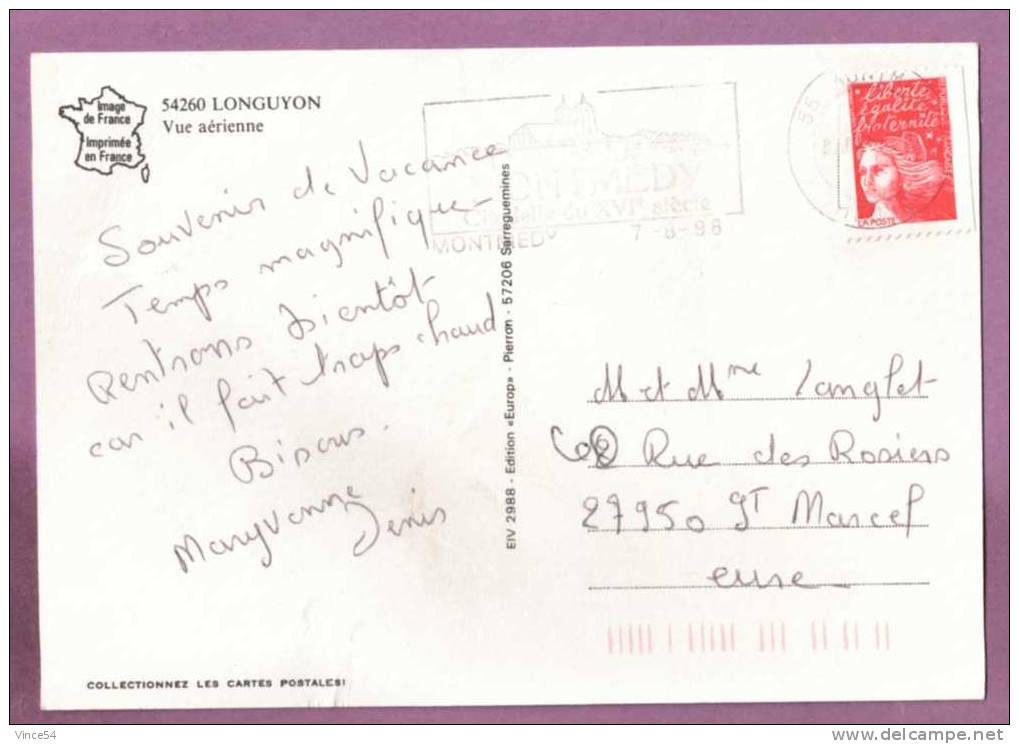 Image
de France
Imprimée
en France
54260 LONGUYON
Vue aérienne
Souvenir de Vacance
Temps magnifique
Rentrons bientôt
car il fait trop chaud
Bisous.
Maryvonne
Denis
COLLECTIONNEZ LES CARTES POSTALES!
EIV 2988 - Edition «Europ» - Pierron - 57206 Sarreguemines
MONTMEDY
Citadelle du XVIe siècle
MONTMEDY 7-8-98
55
liberté
égalité
fraternité
LA POSTE
M et Mme Langlet
62 Rue des Rosiers
27950 ST Marcel
eure
Vince54
www.delcampe.net